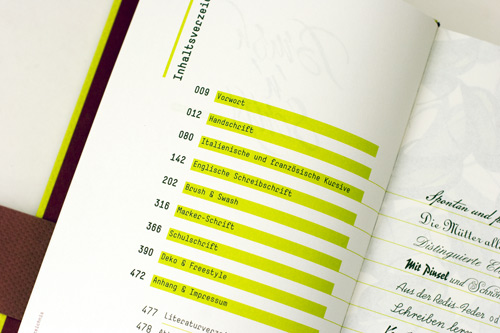 009 Vorwort
012 Handschrift
080 Italienische und französische Kursive
142 Englische Schreibschrift
202 Brush & Swash
316 Marker-Schrift
366 Schulschrift
390 Deko & Freestyle
472 Anhang & Impressum
477
478
Spontan und
Die Mütter
Distinguierte
Mit Pinsel und
Aus der Redis-Feder
Schreiben